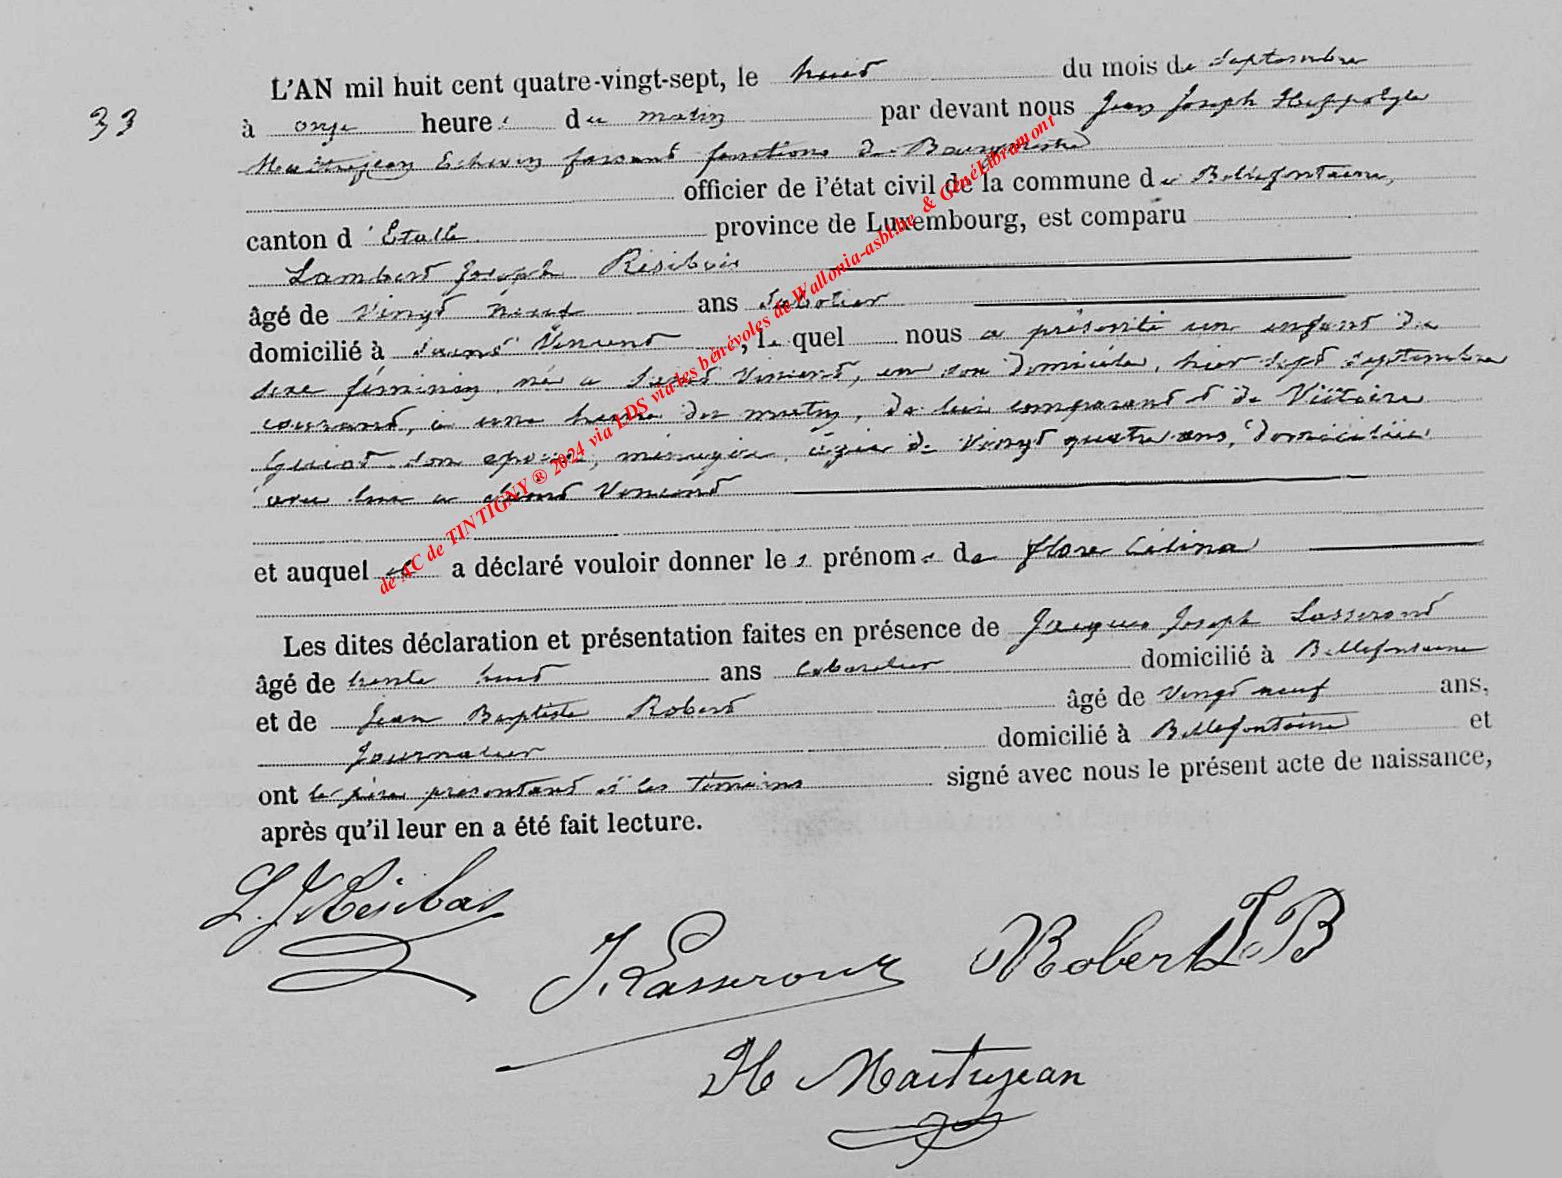 33
L'AN mil huit cent quatre-vingt-sept, le huit du mois de Septembre
à onze heures du matin par devant nous Jean Joseph Hippolyte
Maitrejean Echevin faisant fonctions de Bourgmestre
officier de l'état civil de la commune de Bellefontaine,
canton d'Etalle province de Luxembourg, est comparu
Lambert Joseph Résibois
âgé de vingt neuf ans Sabotier
domicilié à Saint Vincent, le quel nous a présenté un enfant du
sexe féminin, né a Saint Vincent, en son domicile, hier sept septembre
courant, à une heure du matin, de lui comparant & de Victoire
son épouse, ménagère, agée de vingt quatre ans, domiciliée
avec lui a Saint Vincent
et auquel il a déclaré vouloir donner les prénoms de Flore Célina
Les dites déclaration et présentation faites en présence de Jacques Joseph Lasseront
âgé de trente huit ans Cabaretier domicilié à Bellefontaine
et de Jean Baptiste Robert âgé de vingt neuf ans,
Journalier domicilié à Bellefontaine et
ont le père présentant et les témoins signé avec nous le présent acte de naissance,
après qu'il leur en a été fait lecture.
L. J Résibois
J. Lasseront Robert J. B
H Maitrejean
de AC de TINTIGNY ® 2024 via LDS via les bénévoles de Wallonia-asbl.be & GénéLibramont